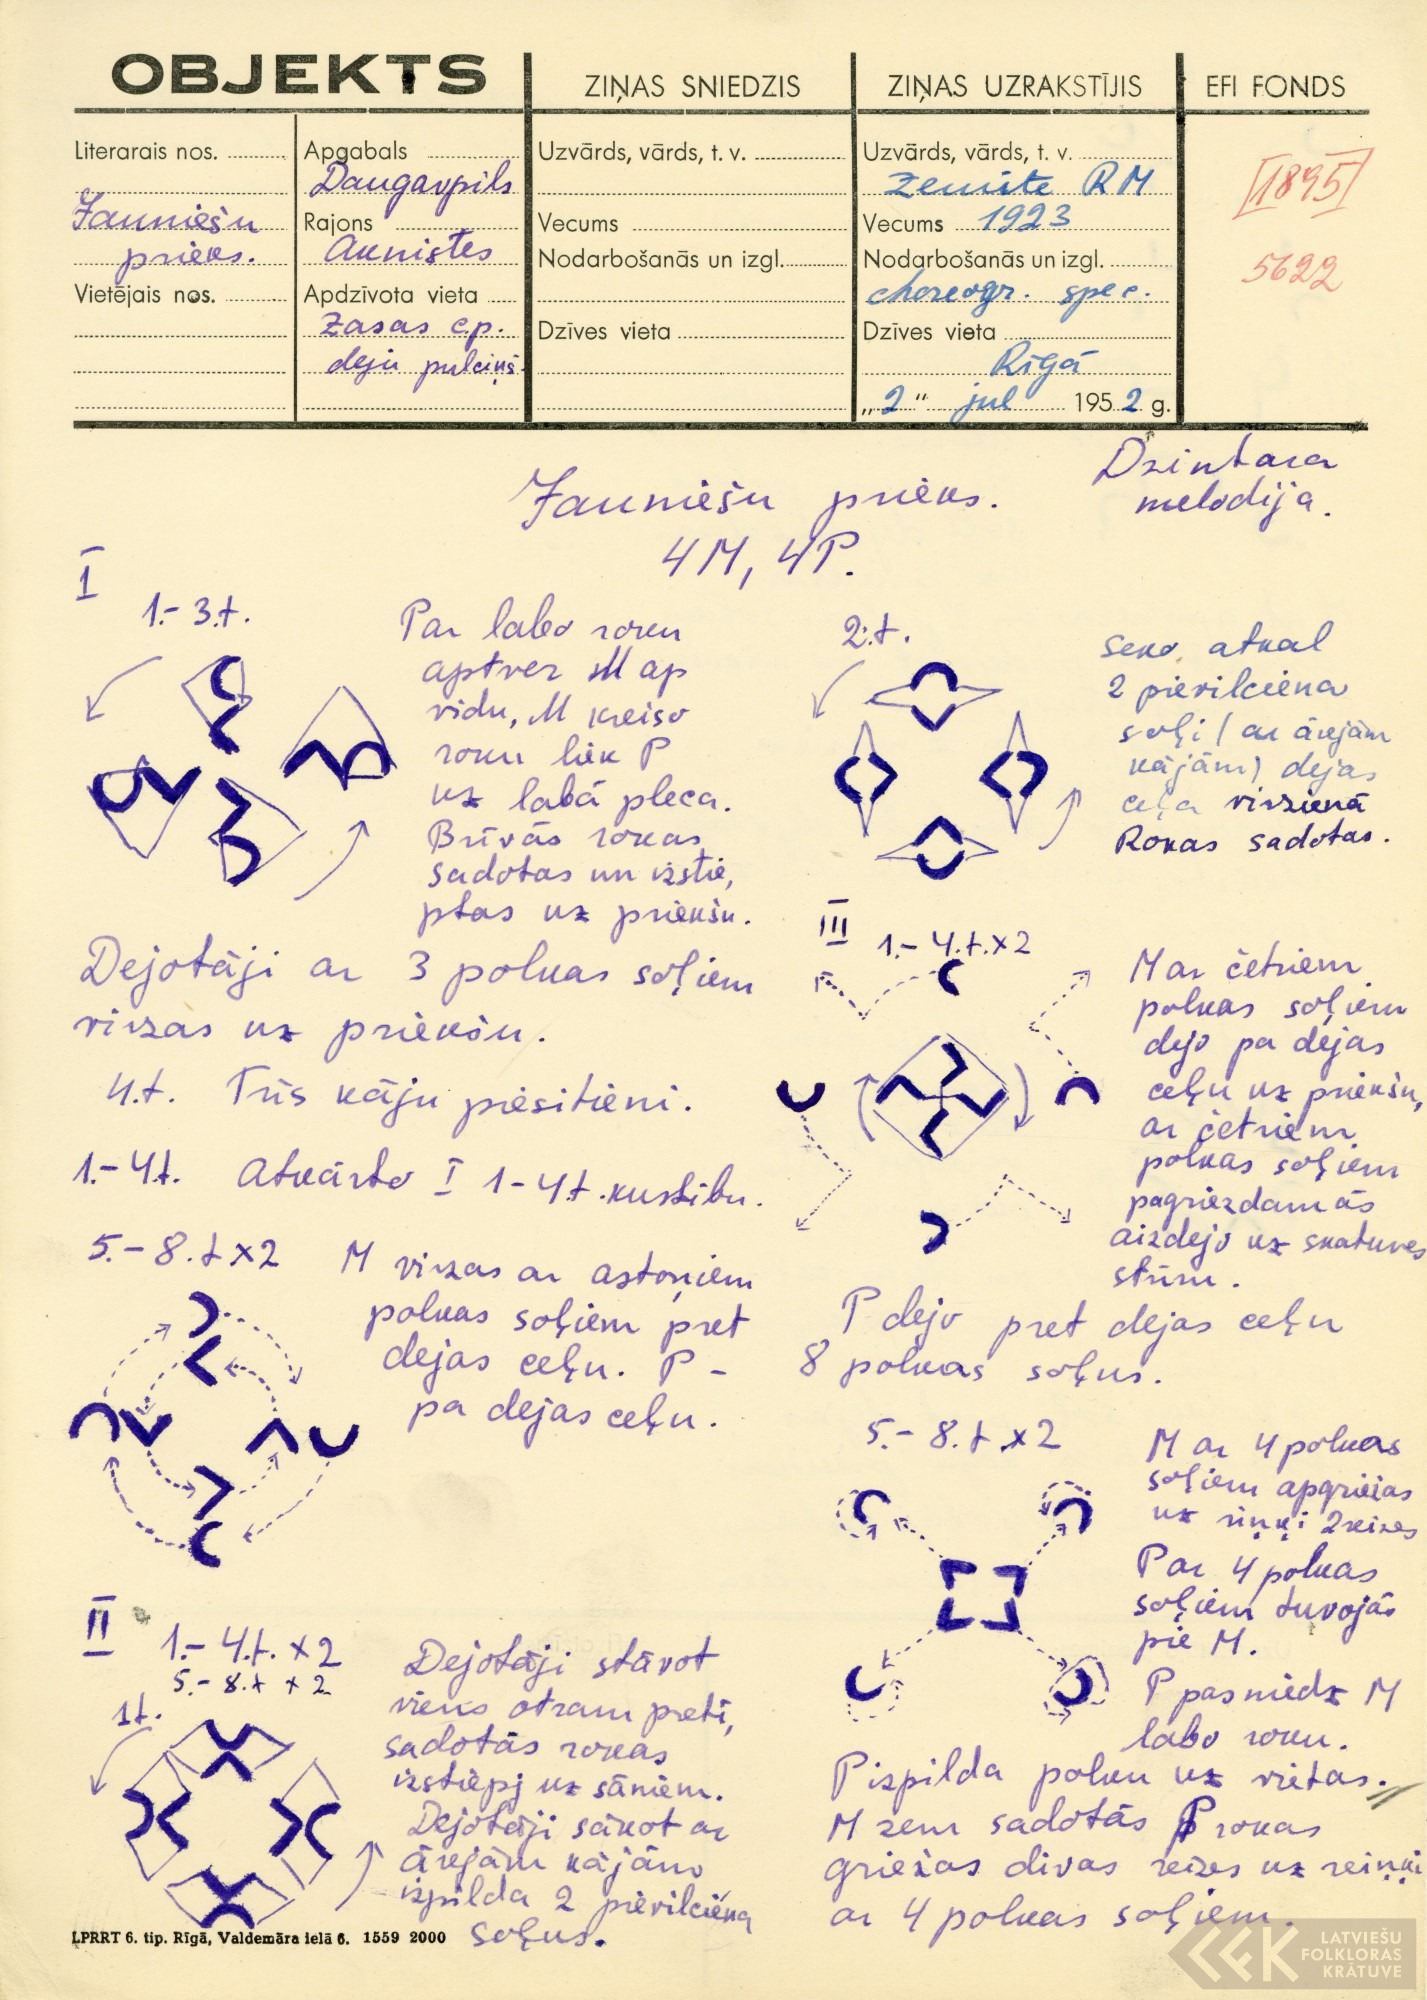 OBJEKTS
ZIŅAS SNIEDZIS
ZIŅAS UZRAKSTĪJIS
EFI FONDS
Literarais nos.
Jauniešu
prieks.
Vietējais nos.
Apgabals
Daugavpils
Rajons
Aknīstes
Apdzīvota vieta
Zasas c.p.
deju pulciņš.
Uzvārds, vārds, t. v.
Vecums
Nodarbošanās un izgl.
Dzīves vieta
Uzvārds, vārds, t. v.
Zemīte RM
Vecums 1923
Nodarbošanās un izgl.
choreogr. spec.
Dzīves vieta
Rīgā
„2" jul 1952 g.
[1895]
5622
Dzintara
melodija.
Jauniešu prieks.
4M, 4P.
I
1.-3.t.
P ar labo roku
aptver M ap
vidu, M kreiso
roku liek P
uz labā pleca.
Brīvās rokas
sadotas un izstie,
ptas uz priekšu.
Dejotāji ar 3 polkas soļiem
virzas uz priekšu.
4.t. Trīs kāju piesitieni.
1.-4.t. Atkārto I 1-4.t. kustību.
5.-8.t x2
M virzas ar astoņiem
polkas soļiem pret
dejas ceļu. P -
pa dejas ceļu.
II
1.-4.t. x2
5.-8.t x 2
1t.
Dejotāji stāvot
viens otram pretī,
sadotās rokas
izstiepj uz sāniem.
Dejotāji sākot ar
ārejām kājām
izpilda 2 pievilciena
soļus.
2.t.
Seko atkal
2 pievilciena
soļi (ar ārejām
kājām) dejas
ceļa virzienā
Rokas sadotas.
III
1.-4.t. x2
M ar četriem
polkas soļiem
dejo pa dejas
ceļu uz priekšu,
ar četriem
polkas soļiem
pagriezdamās
aizdejo uz skatuves
stūri.
P dejo pret dejas ceļu
8 polkas soļus.
5.-8.t x2
M ar 4 polkas
soļiem apgriežas
uz riņķi 2 reizes
P ar 4 polkas
soļiem tuvojās
pie M.
P pasniedz M
labo roku.
P izpilda polku uz vietas.
M zem sadotās P rokas
griežas divas reizes uz reiņķi
ar 4 polkas soļiem.
LPRRT 6. tip. Rīgā, Valdemāra ielā 6. 1559 2000
LATVIEŠU
FOLKLORAS
KRĀTUVE